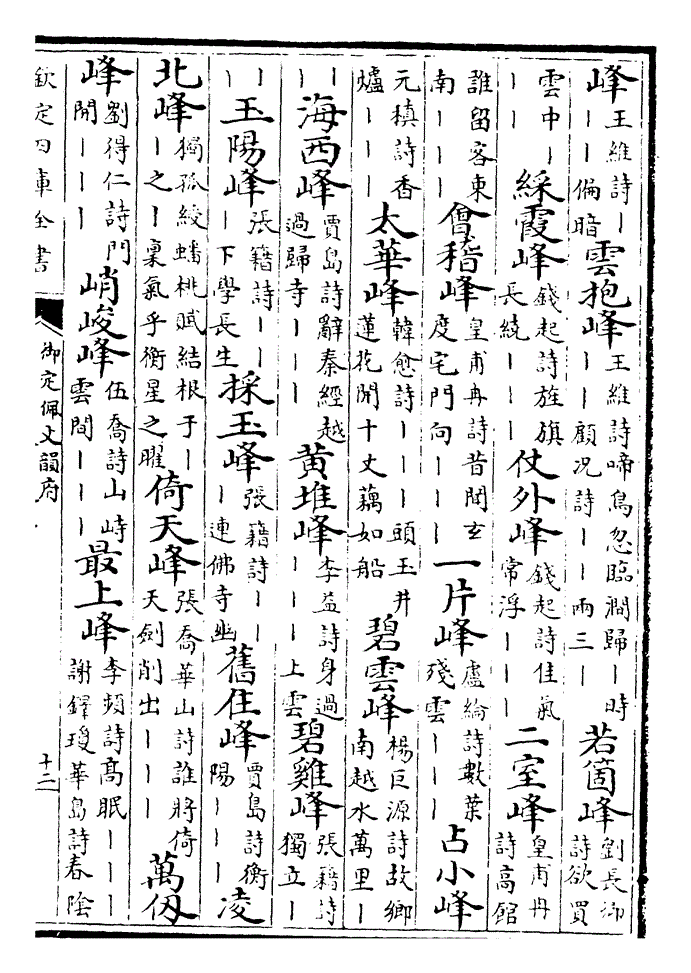 峰王維詩丨丨丨偏暗雲抱峰王維詩啼鳥忽臨澗歸丨時丨丨丨顧况詩丨丨兩三丨若箇峰劉長卿詩欲買
雲中丨丨丨綵霞峰錢起詩旌旗長繞丨丨丨仗外峰錢起詩佳氣常浮丨丨丨二室峰皇甫冉詩高館
誰留客東南丨丨丨會稽峰皇甫冉詩昔聞玄度宅門向丨丨丨一片峰盧綸詩數葉殘雲丨丨丨占小峰
元稹詩香爐丨丨丨太華峰韓愈詩丨丨丨丨頭玉井蓮花開十丈藕如船碧雲峰楊巨源詩故鄉南越水萬里丨
丨丨海西峰賈島詩辭秦經越過歸寺丨丨丨黄堆峰李益詩身過丨丨丨上雲碧雞峰張籍詩獨立丨
丨丨玉陽峰張籍詩丨丨丨下學長生採玉峰張籍詩丨丨丨連佛寺幽舊住峰賈島詩衡陽丨丨丨凌
北峰獨孤綬蟠桃賦結根于丨丨之丨稟氣乎衡星之曜倚天峰張喬華山詩誰將倚天劍削出丨丨丨萬仭
峰劉得仁詩門開丨丨丨峭峻峰伍喬詩山峙雲間丨丨丨最上峰李頻詩高眠丨丨丨謝鐸瓊華島詩春陰
欽定四庫全書 御定佩文韻府 十二